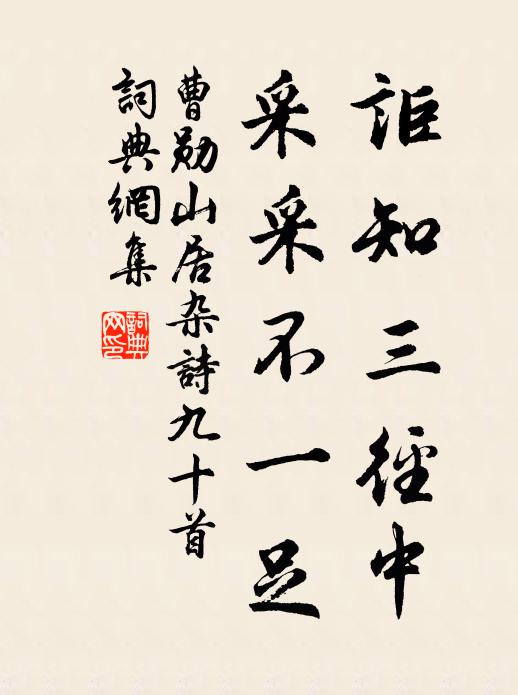 詎知三徑中
采采不一足
曹勛山居杂詩九十首
詞典網集
詞典
网印